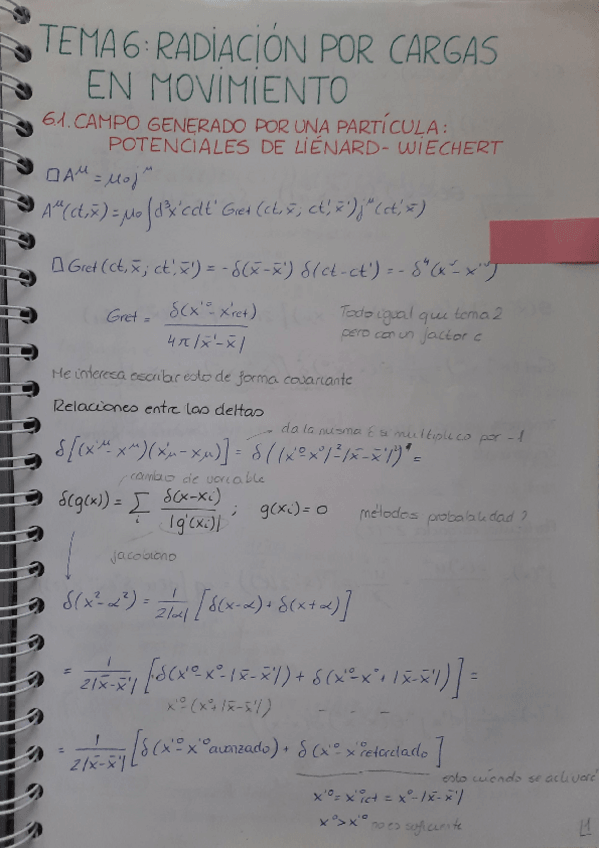 TEMA 6: RADIACIÓN POR CARGAS
EN MOVIMIENTO
6.1. CAMPO GENERADO POR UNA PARTÍCULA:
POTENCIALES DE LIÉNARD-WIECHERT
□A^μ = μ₀j^μ
A^μ(ct,x̄) = μ₀∫d³x'cdt' Gret(ct,x̄, ct',x̄')j^μ(ct',x̄')
□Gret(ct,x̄; ct',x̄') = -δ(x̄-x̄') δ(ct-ct') = -δ⁴(x^ν-x'^ν)
Gret = δ(x'⁰-x'ret) / 4π|x̄'-x̄|
Todo igual que tema 2
pero con un factor c
Me interesa escribir esto de forma covariante
Relaciones entre las deltas
da la misma δ si multiplico por -1
δ[(x'^μ-x^μ)(x'μ-xμ)] = δ(|x'⁰-x⁰|²-|x̄-x̄'|²) =
cambio de variable
δ(g(x)) = Σᵢ δ(x-xᵢ) / |g'(xᵢ)| ; g(xᵢ)=0 métodos probabilidad?
jacobiano
δ(x²-α²) = 1/2|α| [δ(x-α)+δ(x+α)]
= 1/2|x̄-x̄'| [δ(x'⁰-x⁰-|x̄-x̄'|) + δ(x'⁰-x⁰+|x̄-x̄'|)] =
x'⁰-(x⁰+|x̄-x̄'|) - - -
= 1/2|x̄-x̄'| [δ(x'⁰-x'⁰avanzado) + δ(x'⁰-x'⁰retardado)]
esto cuándo se activará
x'⁰=x'⁰ret = x⁰-|x̄-x̄'|
x⁰>x'⁰ no es suficiente